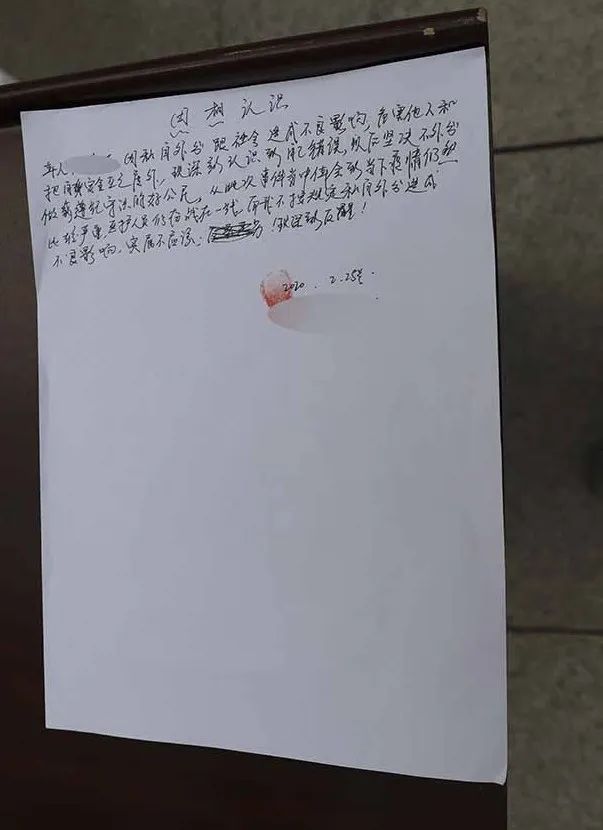 因想认识
本人 因私自外出 跟社会造成不良影响，危害他人和
把自身安全至之度外，我深刻认识到自己错误，以后坚决不外出
做有遵纪守法的好公民，从此次事件当中体会到当下疫情仍然
比较严重，医护人员仍奋战在一线，而我不按规定私自外出造成
不良影响，实属不应该， ！我深刻反醒！
2020.2.25号.